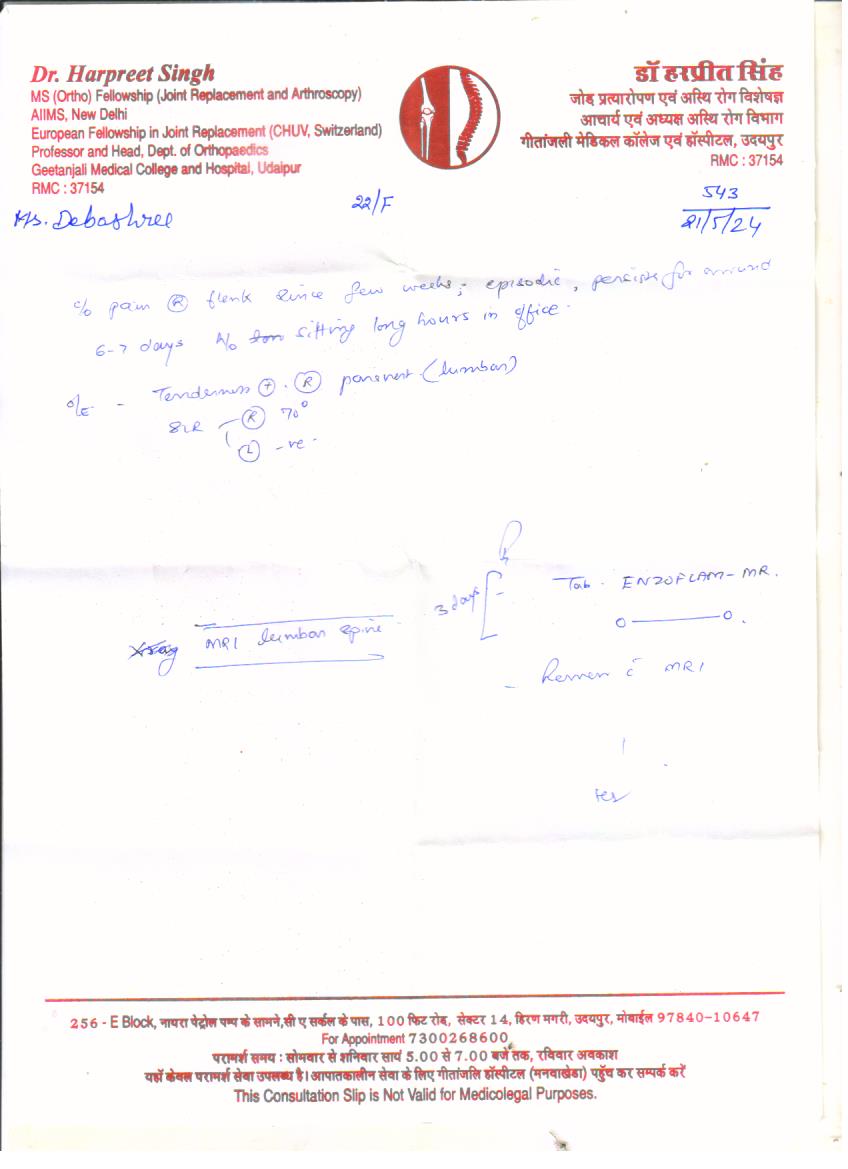 Dr. Harpreet Singh
MS (Ortho) Fellowship (Joint Replacement and Arthroscopy)
AIIMS, New Delhi
European Fellowship in Joint Replacement (CHUV, Switzerland)
Professor and Head, Dept. of Orthopaedics
Geetanjali Medical College and Hospital, Udaipur
RMC : 37154
डॉ हरप्रीत सिंह
जोड़ प्रत्यारोपण एवं अस्थि रोग विशेषज्ञ
आचार्य एवं अध्यक्ष अस्थि रोग विभाग
गीतांजली मेडिकल कॉलेज एवं हॉस्पीटल, उदयपुर
RMC : 37154
Ms. Debashree 22/F
543
21/5/24
c/o pain R flank since few weeks; episodic, persists for around
6-7 days h/o sitting long hours in office.
o/E - Tenderness + . R paravert. (lumbar)
SLR R 70°
L -ve.
MRI lumbar spine
3 days
Tab. ENZOFLAM-MR.
0 — 0.
- Review c̄ MRI
256 - E Block, नायरा पेट्रोल पम्प के सामने,सी ए सर्कल के पास, 100 फिट रोड, सेक्टर 14, हिरण मगरी, उदयपुर, मोबाईल 97840-10647
For Appointment 7300268600
परामर्श समय : सोमवार से शनिवार सायं 5.00 से 7.00 बजे तक, रविवार अवकाश
यहाँ केवल परामर्श सेवा उपलब्ध है। आपातकालीन सेवा के लिए गीतांजलि हॉस्पीटल (मनवाखेडा) पहुँच कर सम्पर्क करें
This Consultation Slip is Not Valid for Medicolegal Purposes.